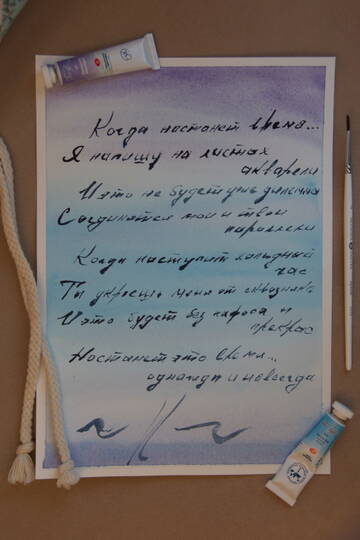 Когда настанет время...
Я напишу на листах
акварели
И это не будет
Соединятся мои и твои
параллели
Когда наступит холодный
час
Ты укроешь меня от сквозняка
И это будет без пафоса и
прикрас
Настанет это время...
однажды и навсегда